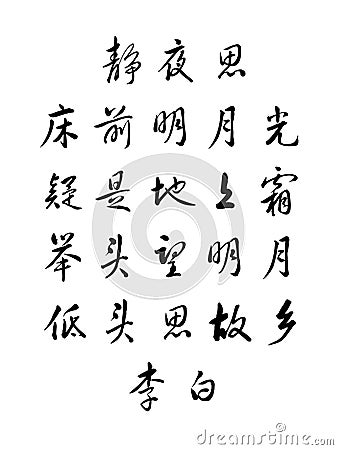 静夜思
床前明月光
疑是地上霜
举头望明月
低头思故乡
李白
dreamstime.com